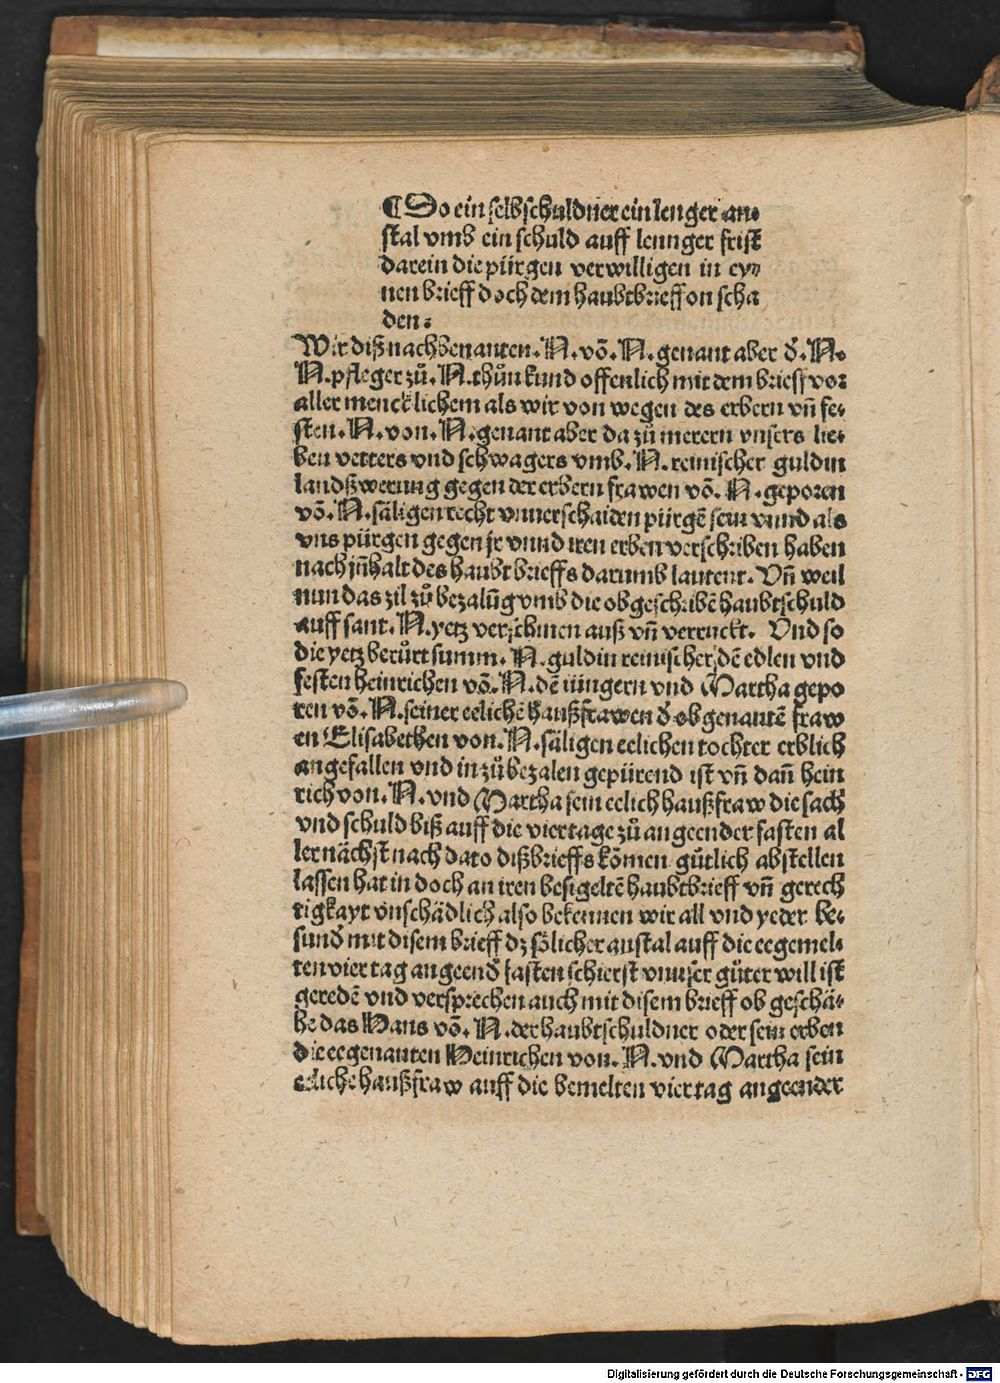 ¶ So ein selbschuldner ein lenger an⸗
stal vmb ein schuld auff lennger frist
darein die pürgen verwilligen in ey⸗
nen brieff doch dem haubtbrieff on scha
den.
Wir diß nachbenanten. N. võ. N. genant aber d̄. N.
N. pfleger zů. N. thůn kund offenlich mit dem brieff vor
aller mencklichem als wir von wegen des erbern vñ fe⸗
sten. N. von. N. genant aber da zů merern vnsers lie⸗
ben vetters vnd schwagers vmb. N. reinischer guldin
landßwerung gegen der erbern frawen võ. N. geporen
võ. N. säligen recht vnuerschaiden pürgẽ sein vnnd als
vns pürgen gegen jr vnnd iren erben verschriben haben
nach jñhalt des haubtbrieffs darumb lautent. Vñ weil
nun das zil zů bezalũg vmb die obgeschribẽ haubtschuld
auff sant. N. yetz verschinen auß vñ verruckt. Vnd so
die yetz berürt summ. N. guldin reinischer dẽ edlen vnd
festen heinrichen võ. N. dẽ iüngern vnd Martha gepo
ren võ. N. seiner eelichẽ haußfrawen d̄ obgenantẽ fraw
en Elisabethen von. N. säligen eelichen tochter erblich
angefallen vnd in zů bezalen gepürend ist vñ dañ hein
rich von. N. vnd Martha sein eelich haußfraw die sach
vnd schuld biß auff die viertage zů angeender fasten al
ler nächst nach dato diß brieffs kõmen gütlich abstellen
lassen hat in doch an iren besigeltẽ haubtbrieff vñ gerech
tigkayt vnschädlich also bekennen wir all vnd yeder be⸗
sund̄ mit disem brieff dz sölicher anstal auff die eegemel⸗
ten vier tag angeend̄ fasten schierst vnnser gůter will ist
geredẽ vnd versprechen auch mit disem brieff ob geschä⸗
he das Hans võ. N. der haubtschuldner oder sein erben
die eegenanten Heinrichen von. N. vnd Martha sein
eeliche haußfraw auff die bemelten viertag angeender
Digitalisierung gefördert durch die Deutsche Forschungsgemeinschaft - DFG